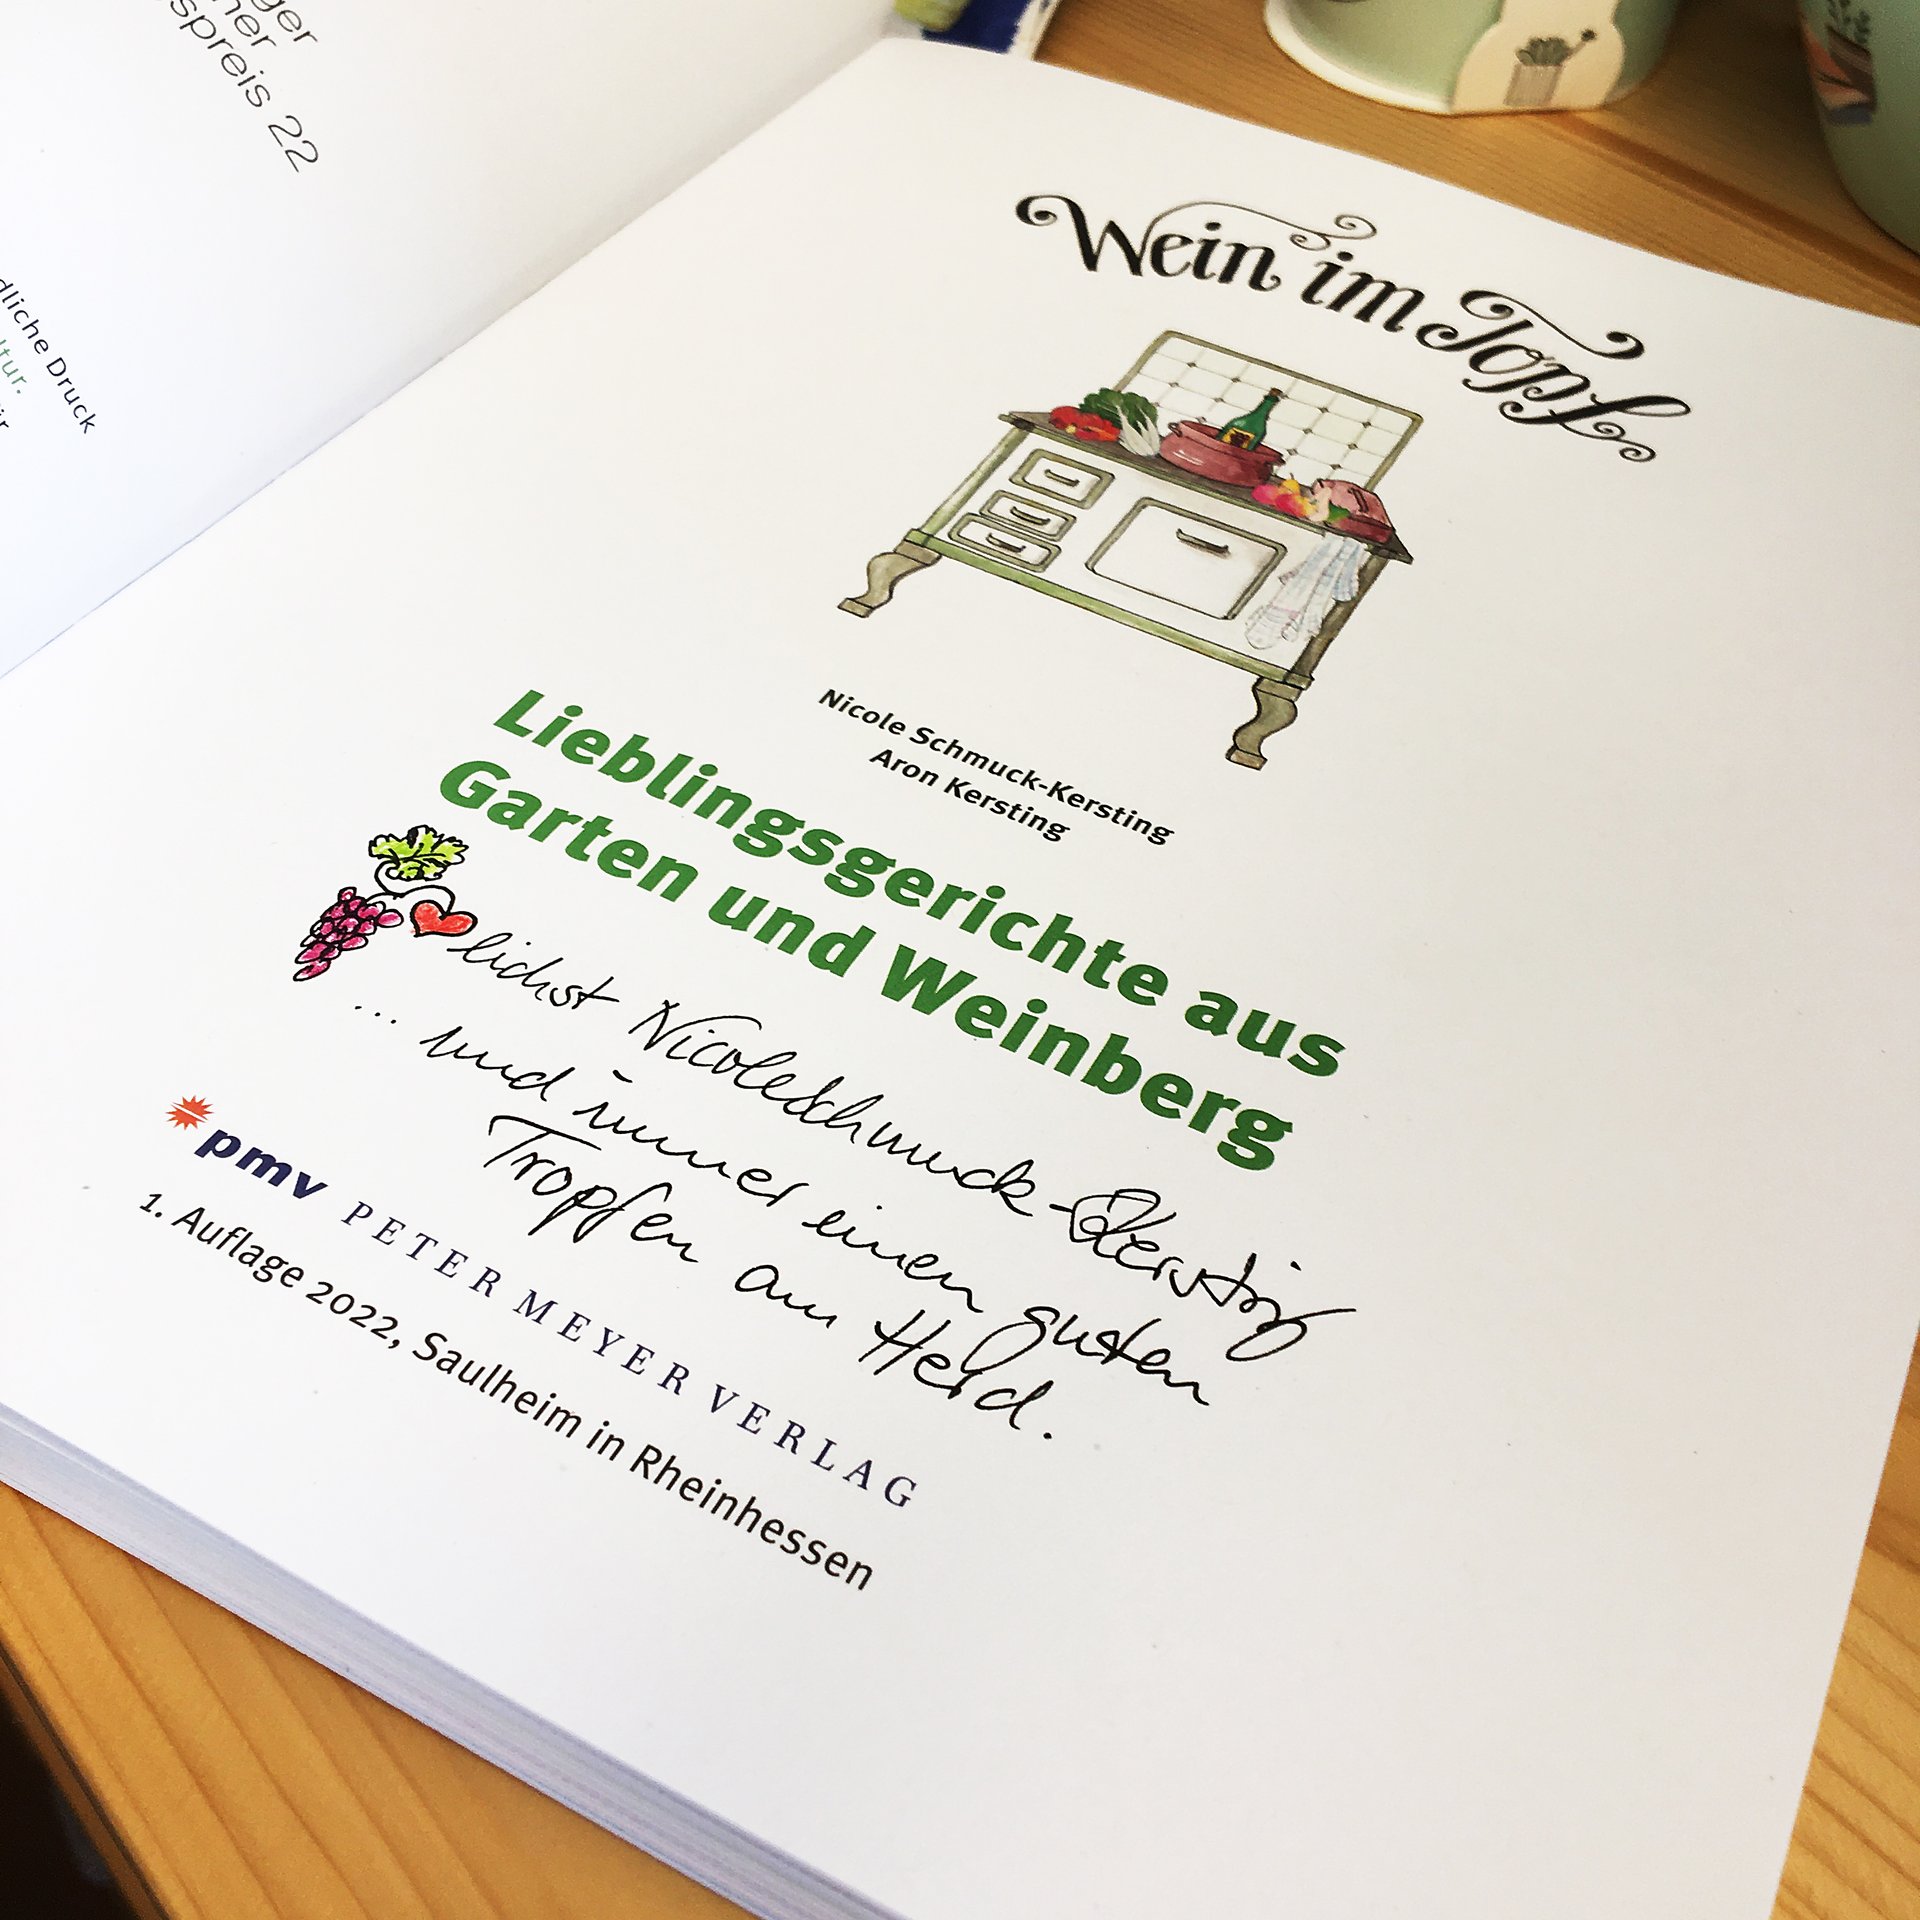 ger
ner
spreis 22
dliche Druck
tur.
ir
Wein im Topf
Nicole Schmuck-Kersting
Aron Kersting
Lieblingsgerichte aus
Garten und Weinberg
lichst Nicole Schmuck-Kersting
... und immer einen guten
Tropfen am Herd.
pmv PETER MEYER VERLAG
1. Auflage 2022, Saulheim in Rheinhessen